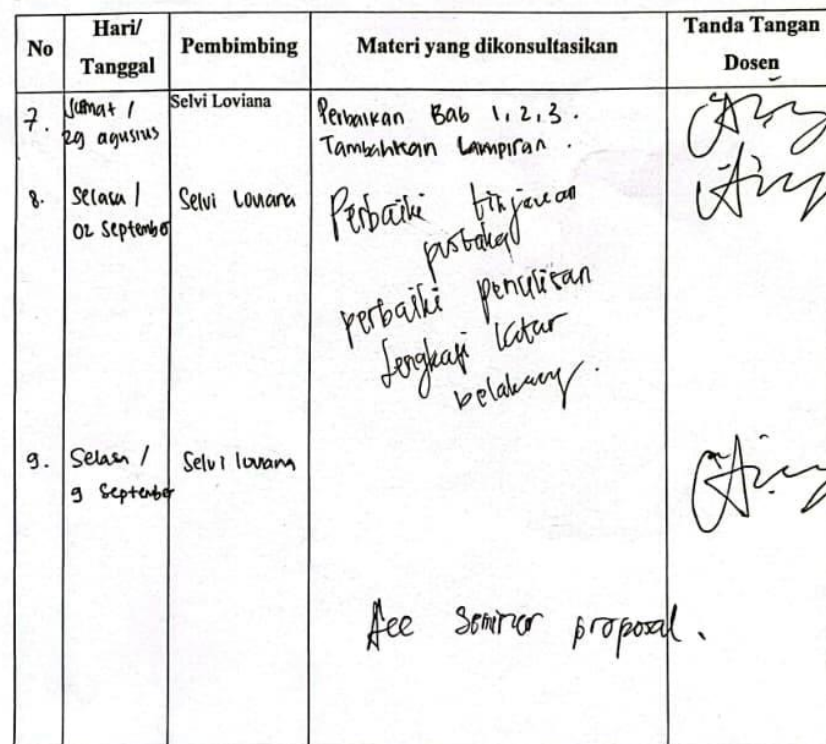 No
Hari/
Tanggal
Pembimbing
Materi yang dikonsultasikan
Tanda Tangan
Dosen
7.
Jumat /
29 agustus
Selvi Loviana
Perbaikan Bab 1, 2, 3.
Tambahkan Lampiran.
8.
Selasa /
02 September
Selvi Loviana
Perbaiki tinjauan
pustaka
perbaiki penulisan
lengkapi latar
belakang.
9.
Selasa /
9 September
Selvi loviana
Acc Seminar proposal.